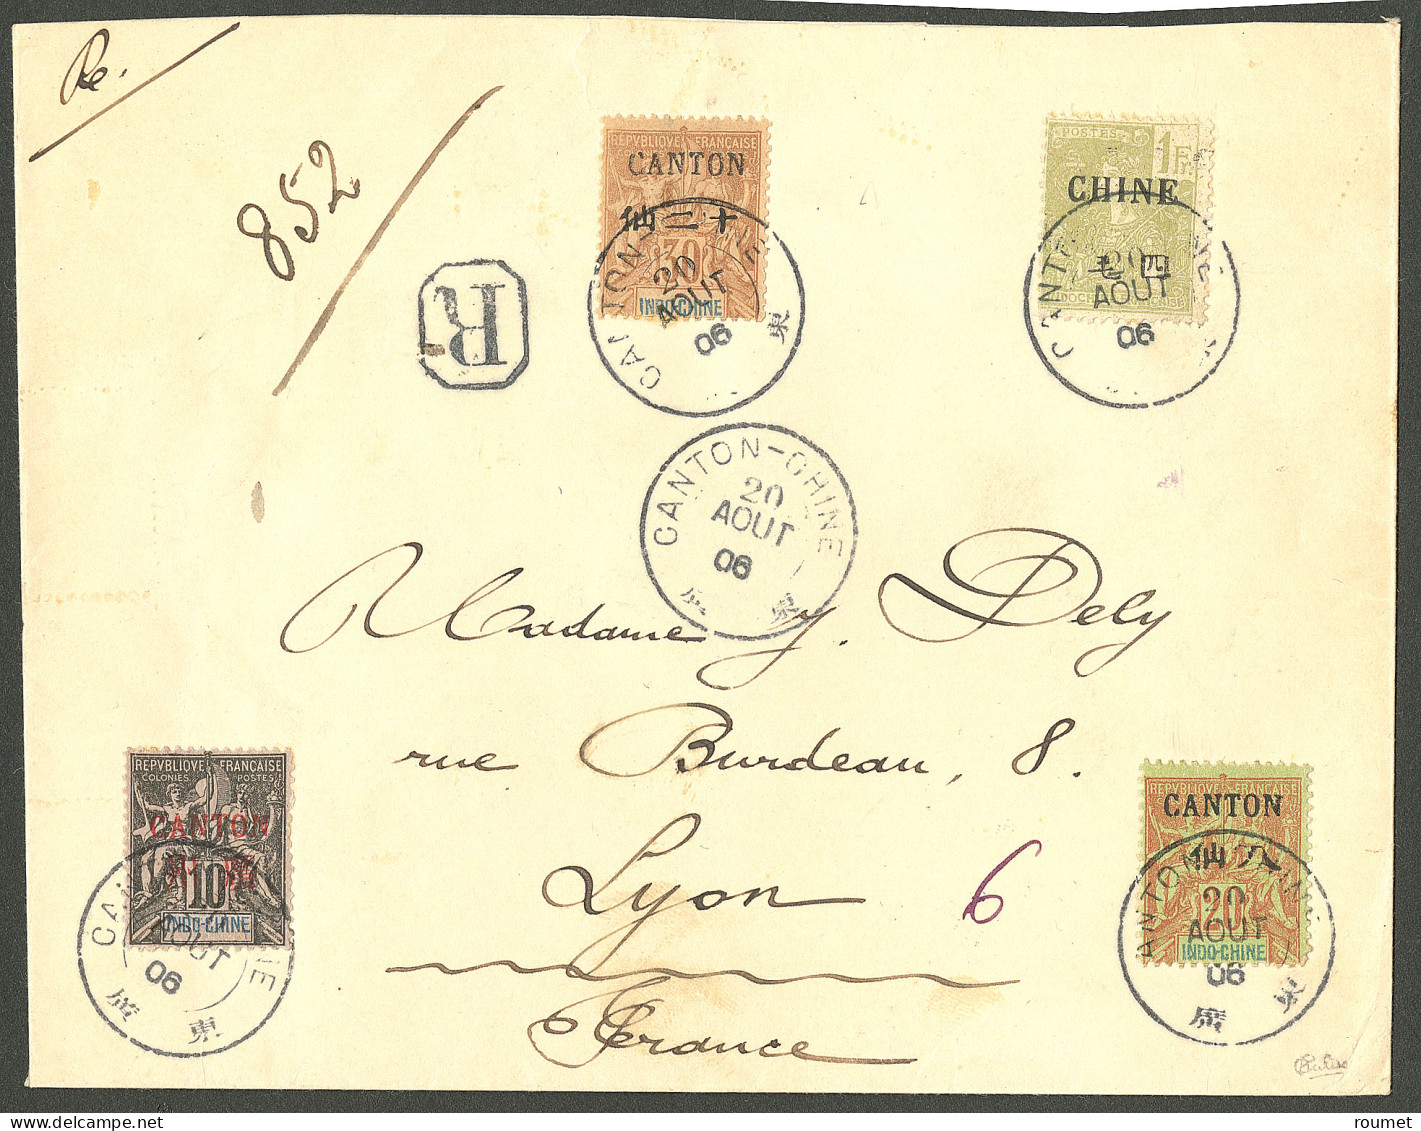 Re.
852
R
REPVBLIQVE FRANÇAISE
CANTON
仙二十
30
INDO-CHINE
CANTON-CHINE
20
AOUT
06
東
POSTES
1 Fr
CHINE
毛四
20
AOUT
06
CANTON-CHINE
20
AOUT
06
廣 東
Madame J. Dely
rue Burdeau, 8.
Lyon
6
France
REPVBLIQVE FRANÇAISE
COLONIES POSTES
CANTON
10
INDO-CHINE
AOUT
06
廣 東
REPVBLIQVE FRANÇAISE
CANTON
仙八
20
INDO-CHINE
20
AOUT
06
廣 東
roumet